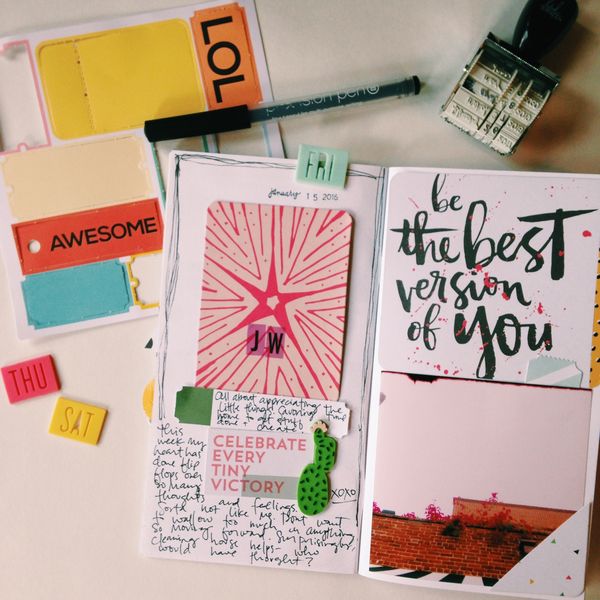 LOL
precision pen
AWESOME
THU
SAT
FRI
january 15 2016
JW
All about appreciating
the little things! Savoring the
home to get stuff
done + create!
CELEBRATE
EVERY
TINY
VICTORY
xoxo
this
week my
heart has
done flip
flops over
so many
thoughts and feelings.
Sorta not like me. Don't want
to wallow too much in anything,
so moving forward. Surprisingly,
cleaning house helps - who
would have thought?
be
the best
version
of you